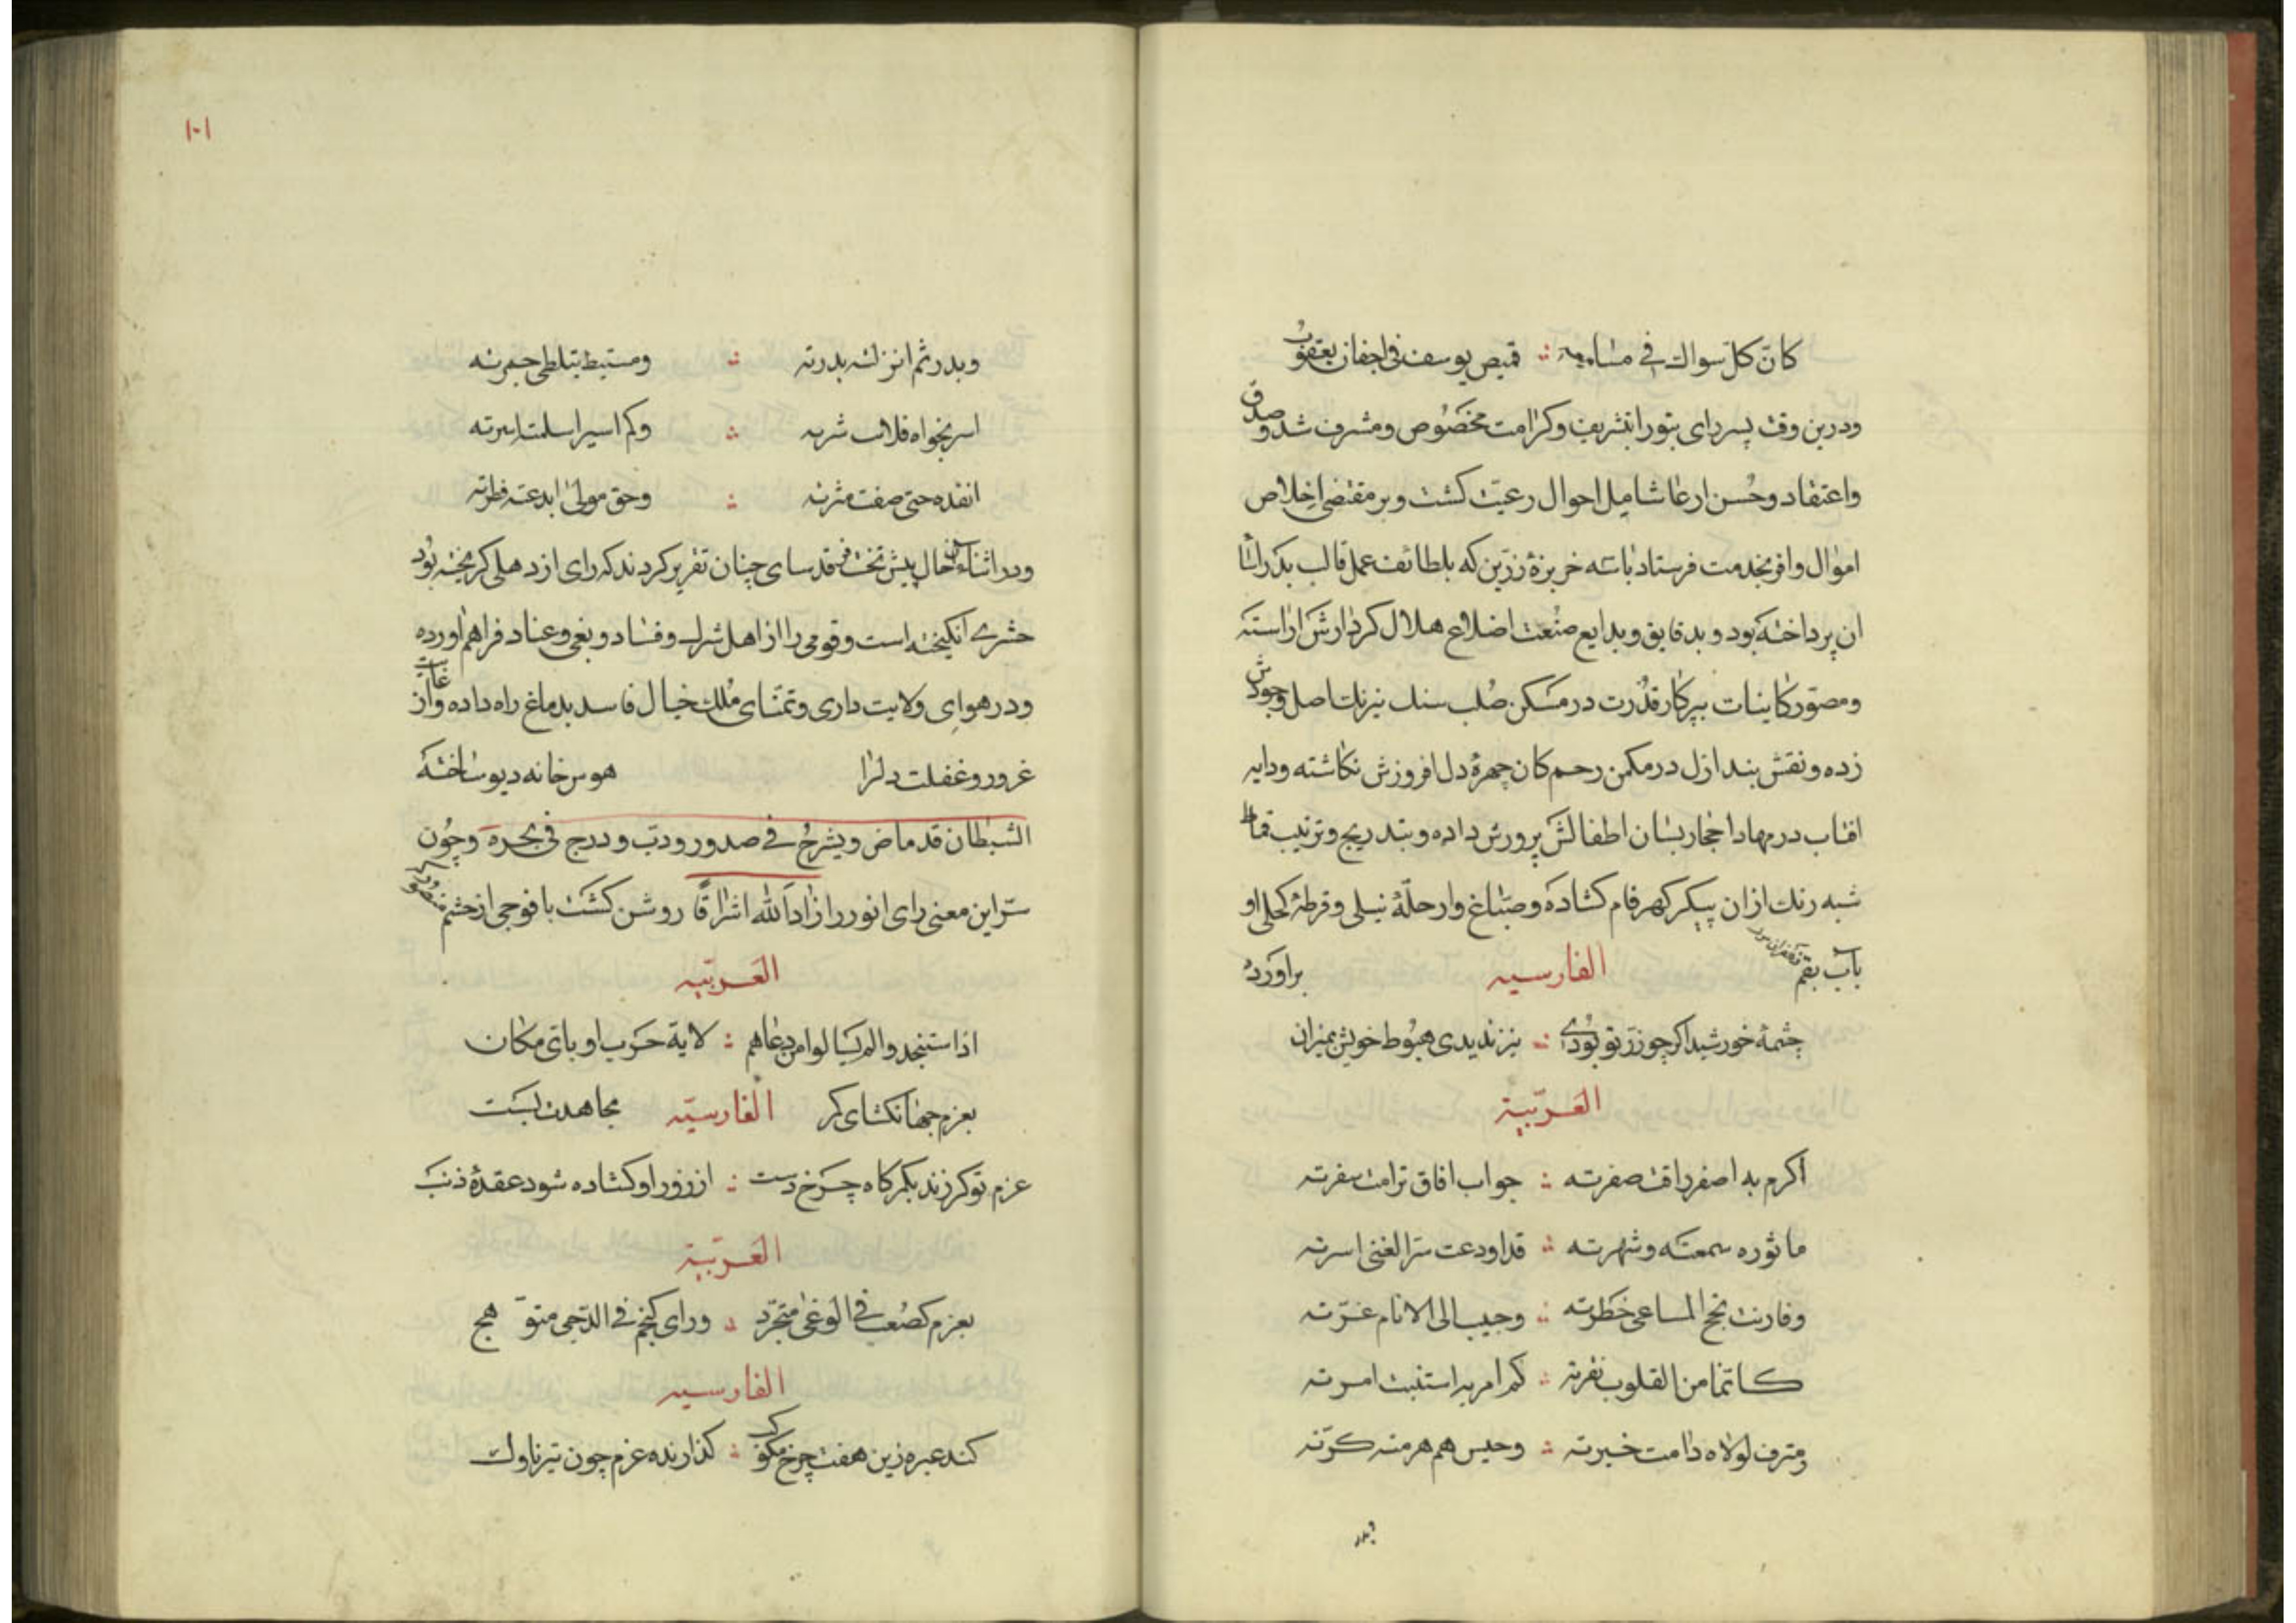 كانّ كلّ سؤال فی مسامعه ؞ قمیص یوسف فی اجفان یعقوب
ودرین وقت پسر رای بتور ابتشریف وکرامت مخصُوص ومشرف شد و صدق
واعتقاد وحُسن ارعا شامل احوال رعیّت کشت وبر مقتضی اخلاص
اموال وافر بخدمت فرستاد با سه خربزهٔ زرّین که بلطائف عمل قالب
ان پرداخته بود و بدقایق وبدایع صنعت اضلاع هلال کردارش اراسته
ومصوّر کاینات بپرکار قدُرت در مسَکن صُلب سنك نیرنك اصل وجودش
زده ونقش بند ازل در مکمن رحم کان چهرهٔ دل افروزش نکاشته ودایه
افتاب در مهاد احجار بسان اطفالش پرورش داده وبتدریج وترتیب قماط
شبه رنك ازان پیکر کهرفام کشاده وصبّاغ وار حلّهٔ نیلی وفرطهٔ کحلی او
باب بقم الفارسیه براورده
چشمهٔ خورشید اکر چو زرّ تو بُودی ؞ نیز ندیدی هبُوط خویش بمیزان
العَربّیة
اکرم به اصفر راقت صفرته ؞ جواب افاق ترامت سفرته
ماثوره سمعته وشهرته ؞ قد اودعت سرّ الغنی اسرته
وقارنت نجح المساعی خطرته ؞ وحبیب الی الانام غرّته
کانّما من القلوب نقرته ؞ کم امر به استتبت امرته
ومترف لولاه دامت حسرته ؞ وجیش هم هرمته کرّته
وبدر
١٠١
وبدر تمّ انزلته بدرته ؞ ومستشیط تتلظی جمرته
اسر نجواه فلانت شرته ؞ وکم اسیر اسلمته اسرته
انقذه حتی صفت مسرته ؞ وحق مولیٰ ابدعته فطرته
ودر اثناء ان حال پیش تخت فرقدسای چنان تقریر کردند که رای از دهلی کریخته بُود
حشری انکیخته است وقومی را از اهل شرك وفساد وبغی وعناد فراهم اورده
ودر هوایِ ولایت داری وتمنّای مُلك خیال فاسد بدماغ راه داده واز غایت
غرور وغفلت دلرا هوس خانه دیو ساخته
الشیطان قد ماض ویشرخُ فی صدور ودبّ ودرج فی بحره وچُون
سرّ این معنی رای انور را زاد الله اشراقًا روشن کشت با فوجی از حشم منصور که
العَربّیه
اذا استنجدوا لم یسالوا من دعاهم ؞ لایة حَرب او بای مکان
بعزم جهانکشای کر الفارسیّه مجاهدت ببست
عزم تو کر زند بکمرکاه چرخ دست ؞ از زور او کشاده شود عقدهٔ ذنب
العَربّیة
بعزم کصُعب فی الوغیٰ متجرّد ؞ ورای کنجم فی الدّجی متوهج
الفارسیه
کند عبره زین هفت چرخ مکوکب ؞ کذارنده عزم چون تیر ناوك